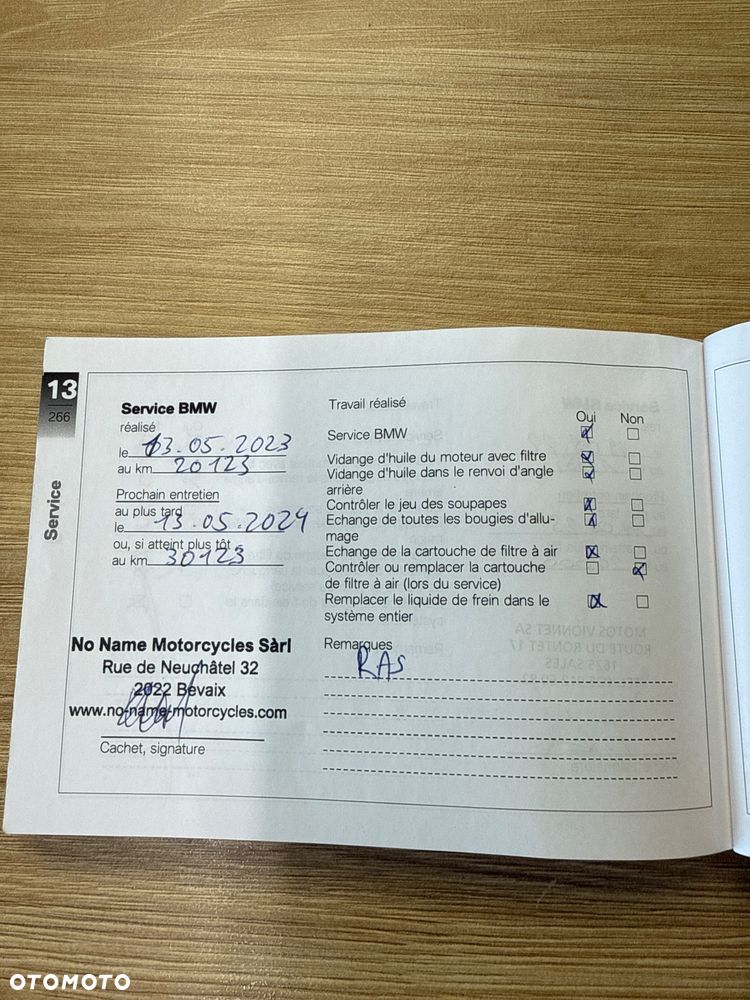 13
266
Service
Service BMW
réalisé
le 13.05.2023
au km 20123
Prochain entretien
au plus tard
le 13.05.2024
ou, si atteint plus tôt
au km 30123
No Name Motorcycles Sàrl
Rue de Neuchâtel 32
2022 Bevaix
www.no-name-motorcycles.com
Cachet, signature
Travail réalisé
Oui Non
Service BMW
Vidange d'huile du moteur avec filtre
Vidange d'huile dans le renvoi d'angle
arrière
Contrôler le jeu des soupapes
Echange de toutes les bougies d'allu-
mage
Echange de la cartouche de filtre à air
Contrôler ou remplacer la cartouche
de filtre à air (lors du service)
Remplacer le liquide de frein dans le
système entier
Remarques
RAS
OTOMOTO